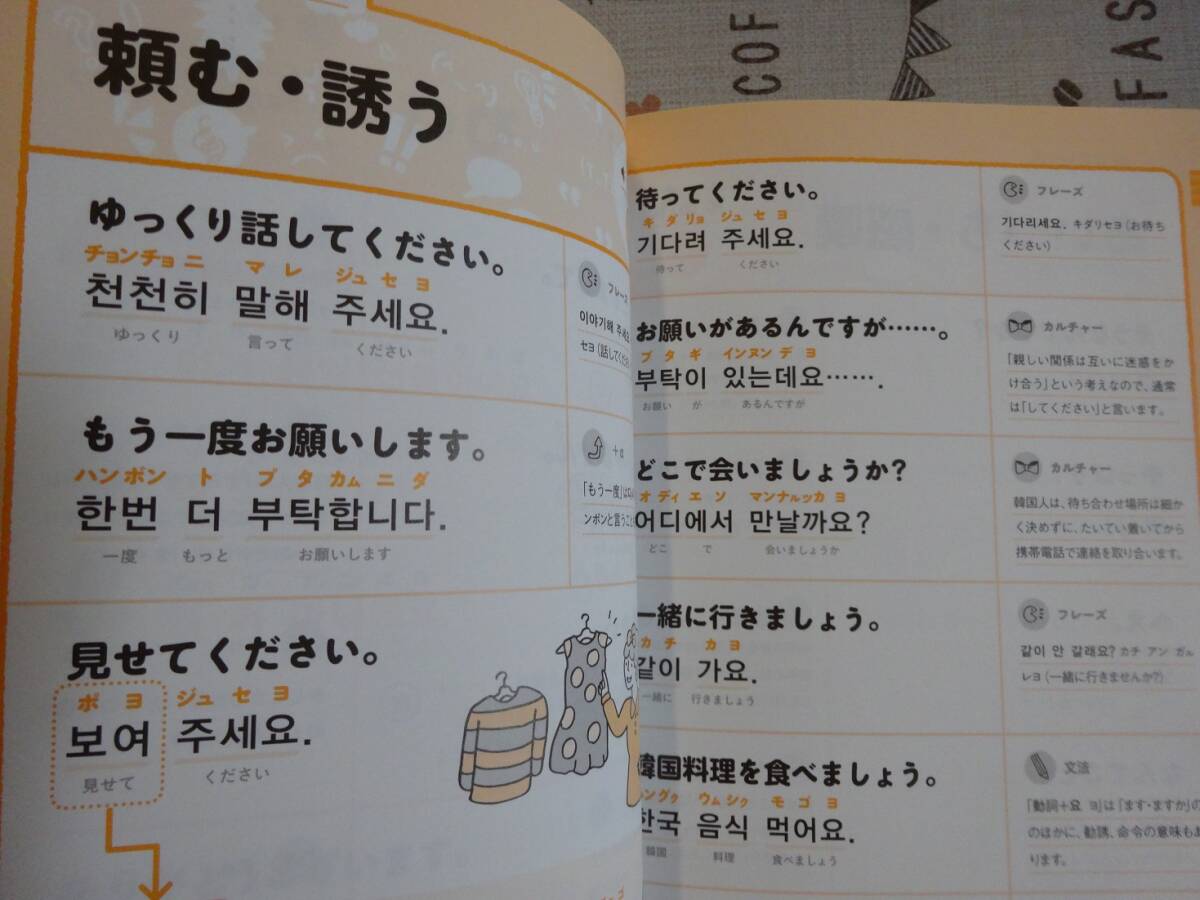 COF
FAS
頼む・誘う
ゆっくり話してください。
チョンチョニ マレ ジュセヨ
천천히 말해 주세요.
ゆっくり 言って ください
フレーズ
이야기해 주세요
セヨ(話してくだ
もう一度お願いします。
ハンボン ト プタカムニダ
한번 더 부탁합니다.
一度 もっと お願いします
+α
「もう一度」は
ンボンと言うこ
見せてください。
ボヨ ジュセヨ
보여 주세요.
見せて ください
待ってください。
キダリョ ジュセヨ
기다려 주세요.
待って ください
フレーズ
기다리세요. キダリセヨ(お待ち
ください)
お願いがあるんですが……。
プタギ インヌンデヨ
부탁이 있는데요…….
お願い が あるんですが
カルチャー
「親しい関係は互いに迷惑をか
け合う」という考えなので、通常
は「してください」と言います。
どこで会いましょうか?
オディエソ マンナルッカヨ
어디에서 만날까요?
どこ で 会いましょうか
カルチャー
韓国人は、待ち合わせ場所は細か
く決めずに、たいてい着いてから
携帯電話で連絡を取り合います。
一緒に行きましょう。
カチ カヨ
같이 가요.
一緒に 行きましょう
フレーズ
같이 안 갈래요? カチ アン ガル
レヨ(一緒に行きませんか?)
韓国料理を食べましょう。
ングゥ ウムシク モゴヨ
한국 음식 먹어요.
韓国 料理 食べましょう
文法
「動詞+요 ヨ」は「ます・ますか」の
のほかに、勧誘、命令の意味もあ
ります。